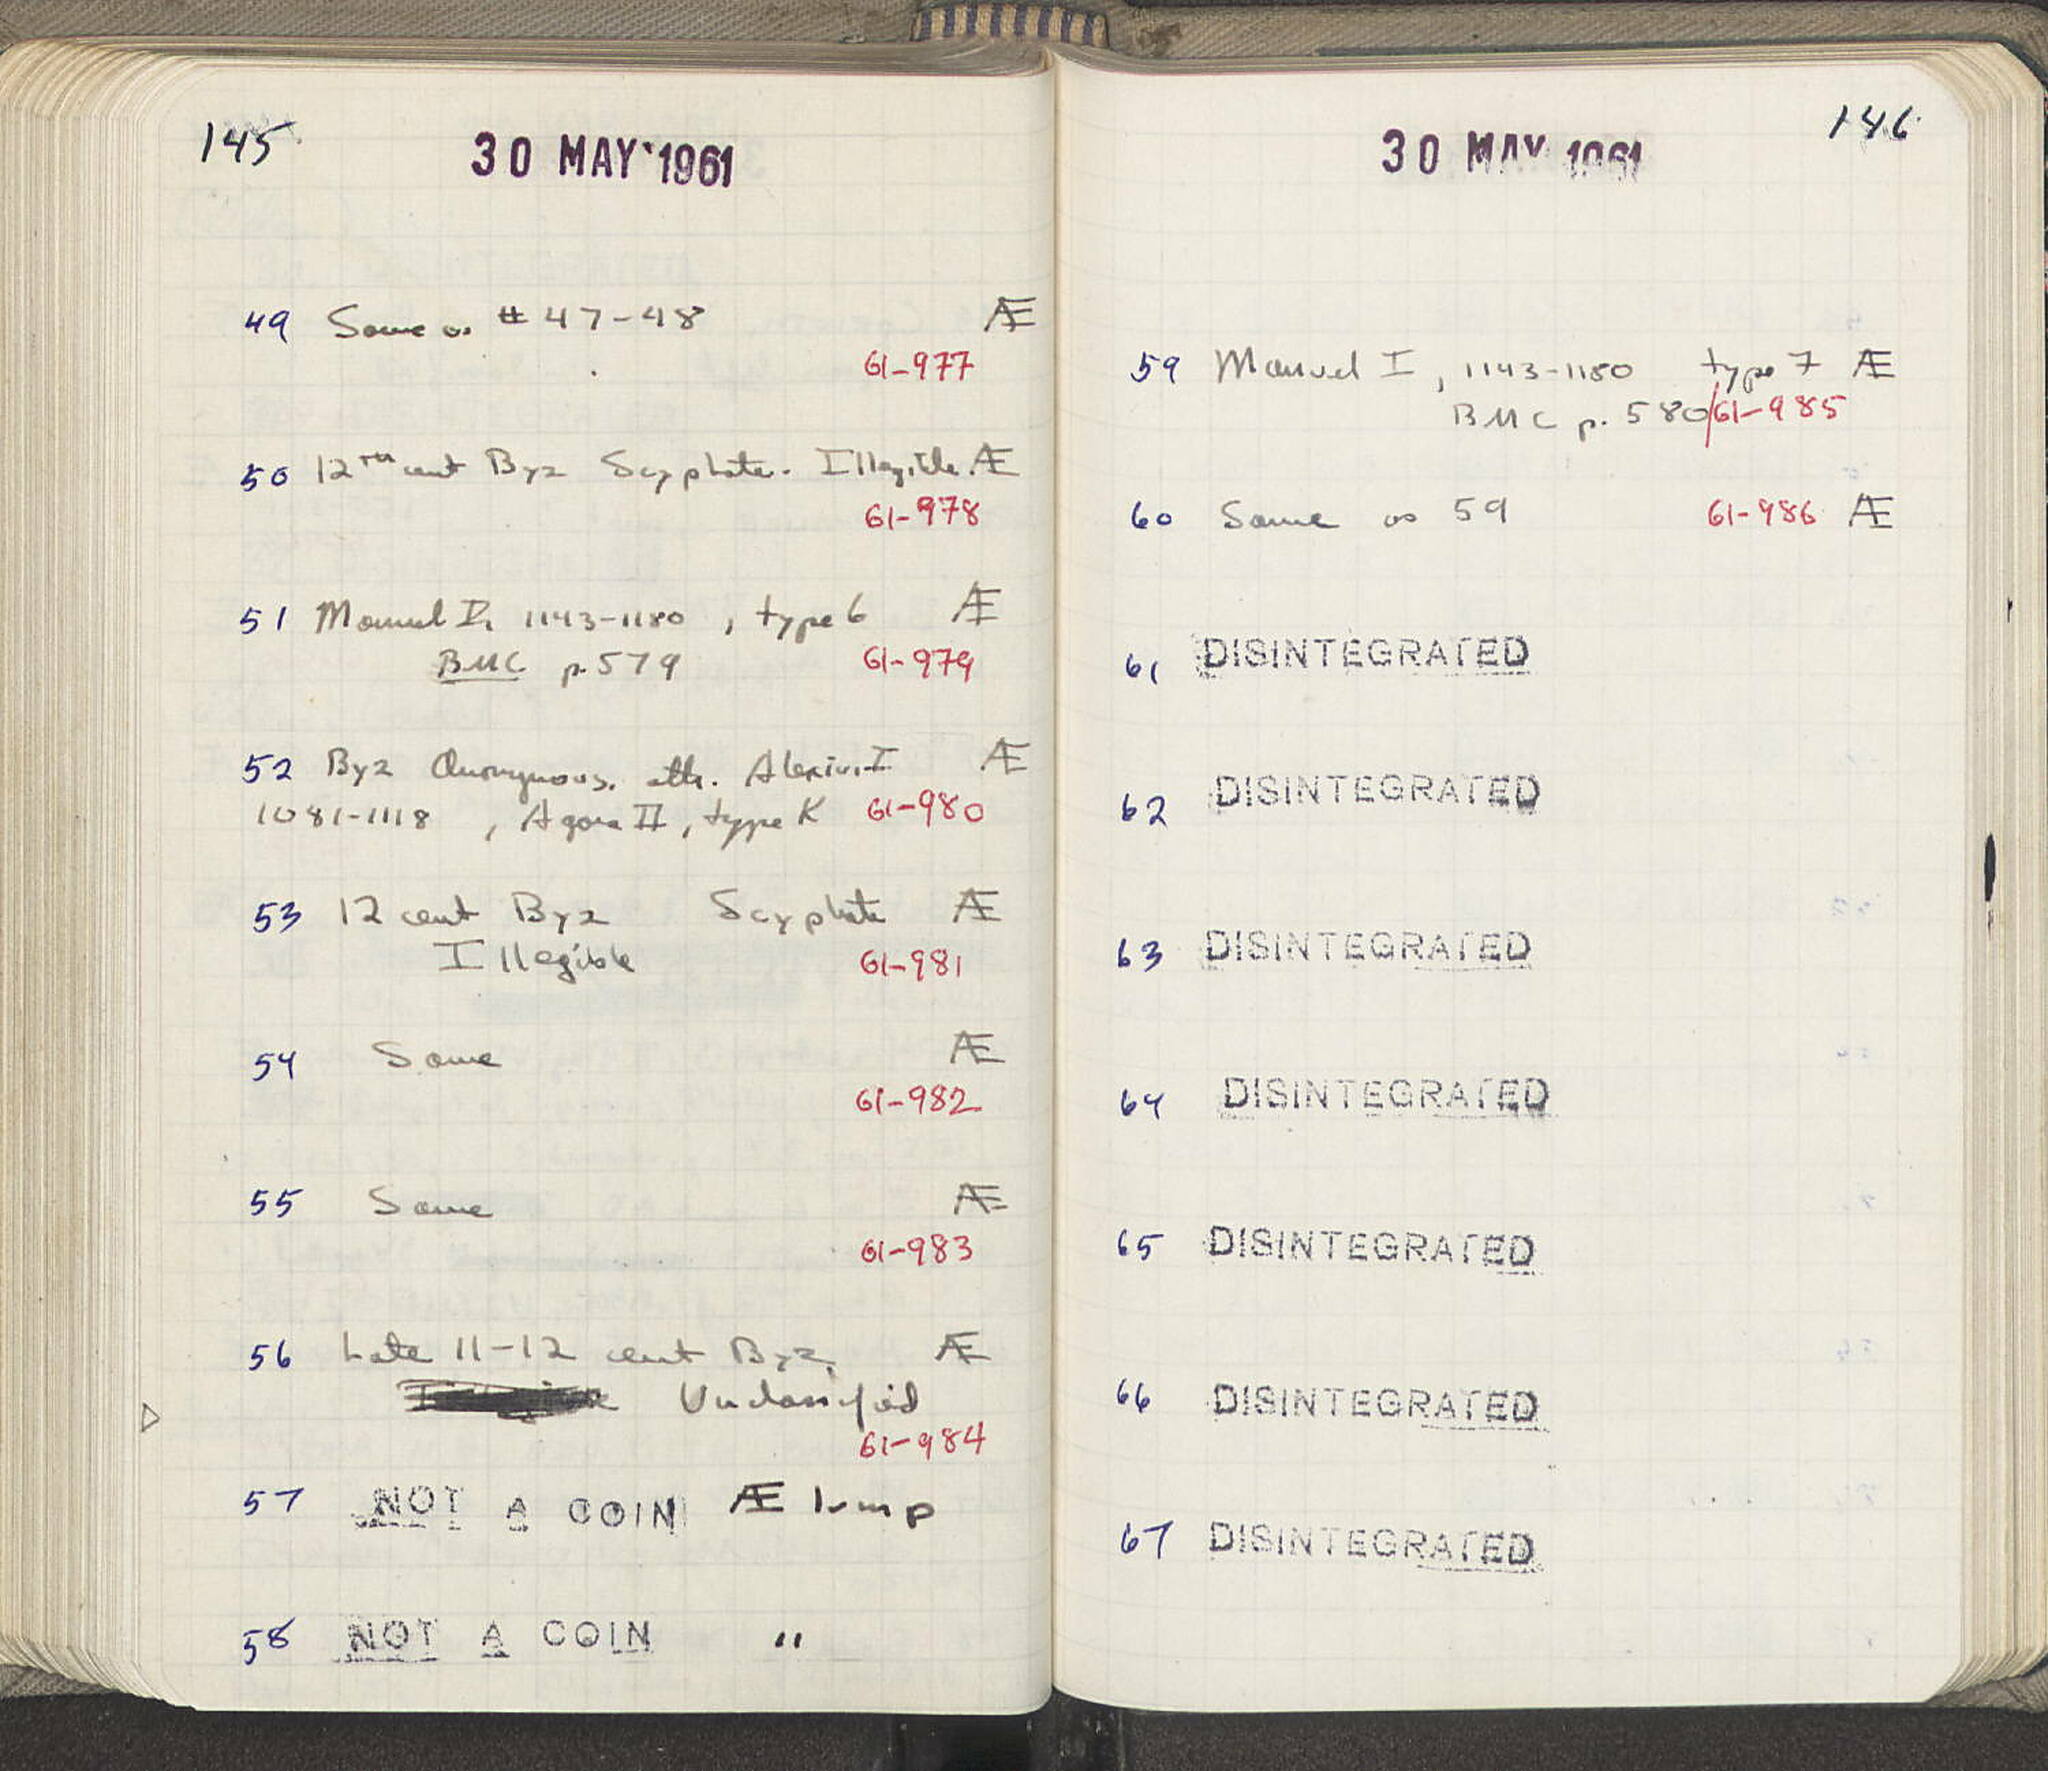 145
30 MAY 1961
49 Same as # 47-48 Æ
61-977
50 12th cent Byz Scyphate. Illegible. Æ
61-978
51 Manuel I, 1143-1180, type 6 Æ
BMC p. 579 61-979
52 Byz Anonymous. attr. Alexius I Æ
1081-1118, Agora II, type K 61-980
53 12 cent Byz Scyphate Æ
Illegible 61-981
54 Same Æ
61-982
55 Same Æ
61-983
56 Late 11-12 cent Byz, Æ
Unclassified
61-984
57 NOT A COIN Æ lump
58 NOT A COIN "
146
30 MAY 1961
59 Manuel I, 1143-1180 type 7 Æ
BMC p. 580/61-985
60 Same as 59 61-986 Æ
61 DISINTEGRATED
62 DISINTEGRATED
63 DISINTEGRATED
64 DISINTEGRATED
65 DISINTEGRATED
66 DISINTEGRATED
67 DISINTEGRATED